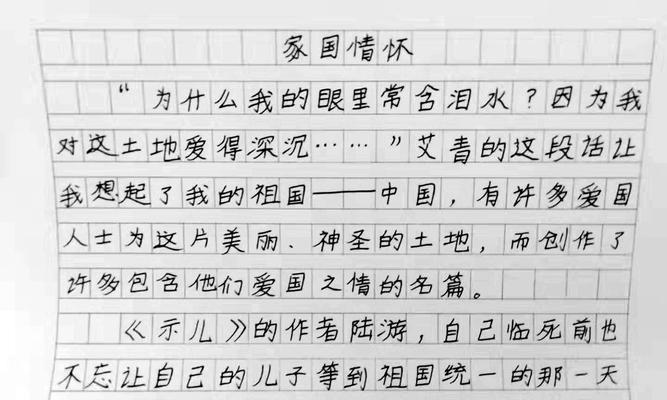 家国情怀
“为什么我的眼里常含泪水？因为我
对这土地爱得深沉……”艾青的这段话让
我想起了我的祖国——中国，有许多爱国
人士为这片美丽、神圣的土地，而创作了
许多包含他们爱国之情的名篇。
《示儿》的作者陆游，自己临死前也
不忘让自己的儿子等到祖国统一的那一天